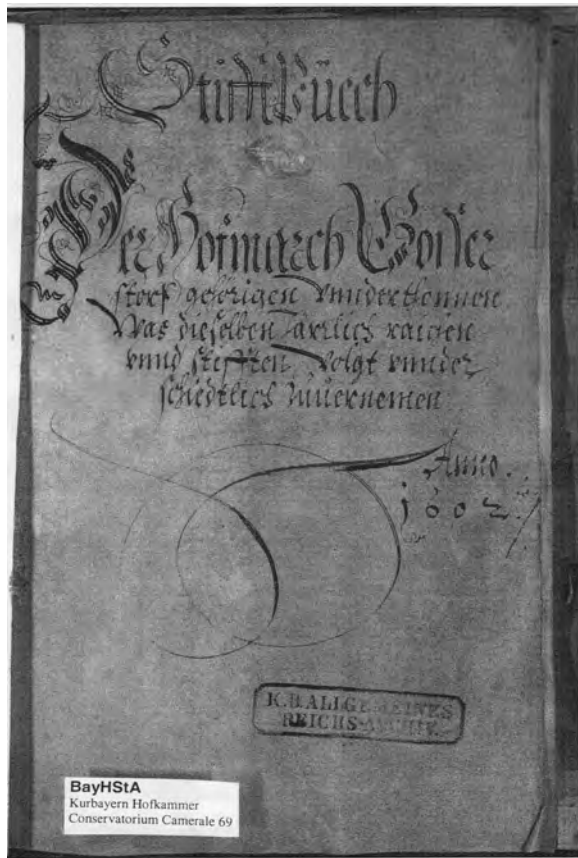 Stifft Püech
Der Hofmarch
storf gehörigen vnnderthonnen
Was dieselben Järlich raichen
vnnd stifften, Volgt vnnder
schiedtlich Zuuernemen
Anno.
1602.
K.B.ALLGEMEINES
REICHS-ARCHIV.
BayHStA
Kurbayern Hofkammer
Conservatorium Camerale 69